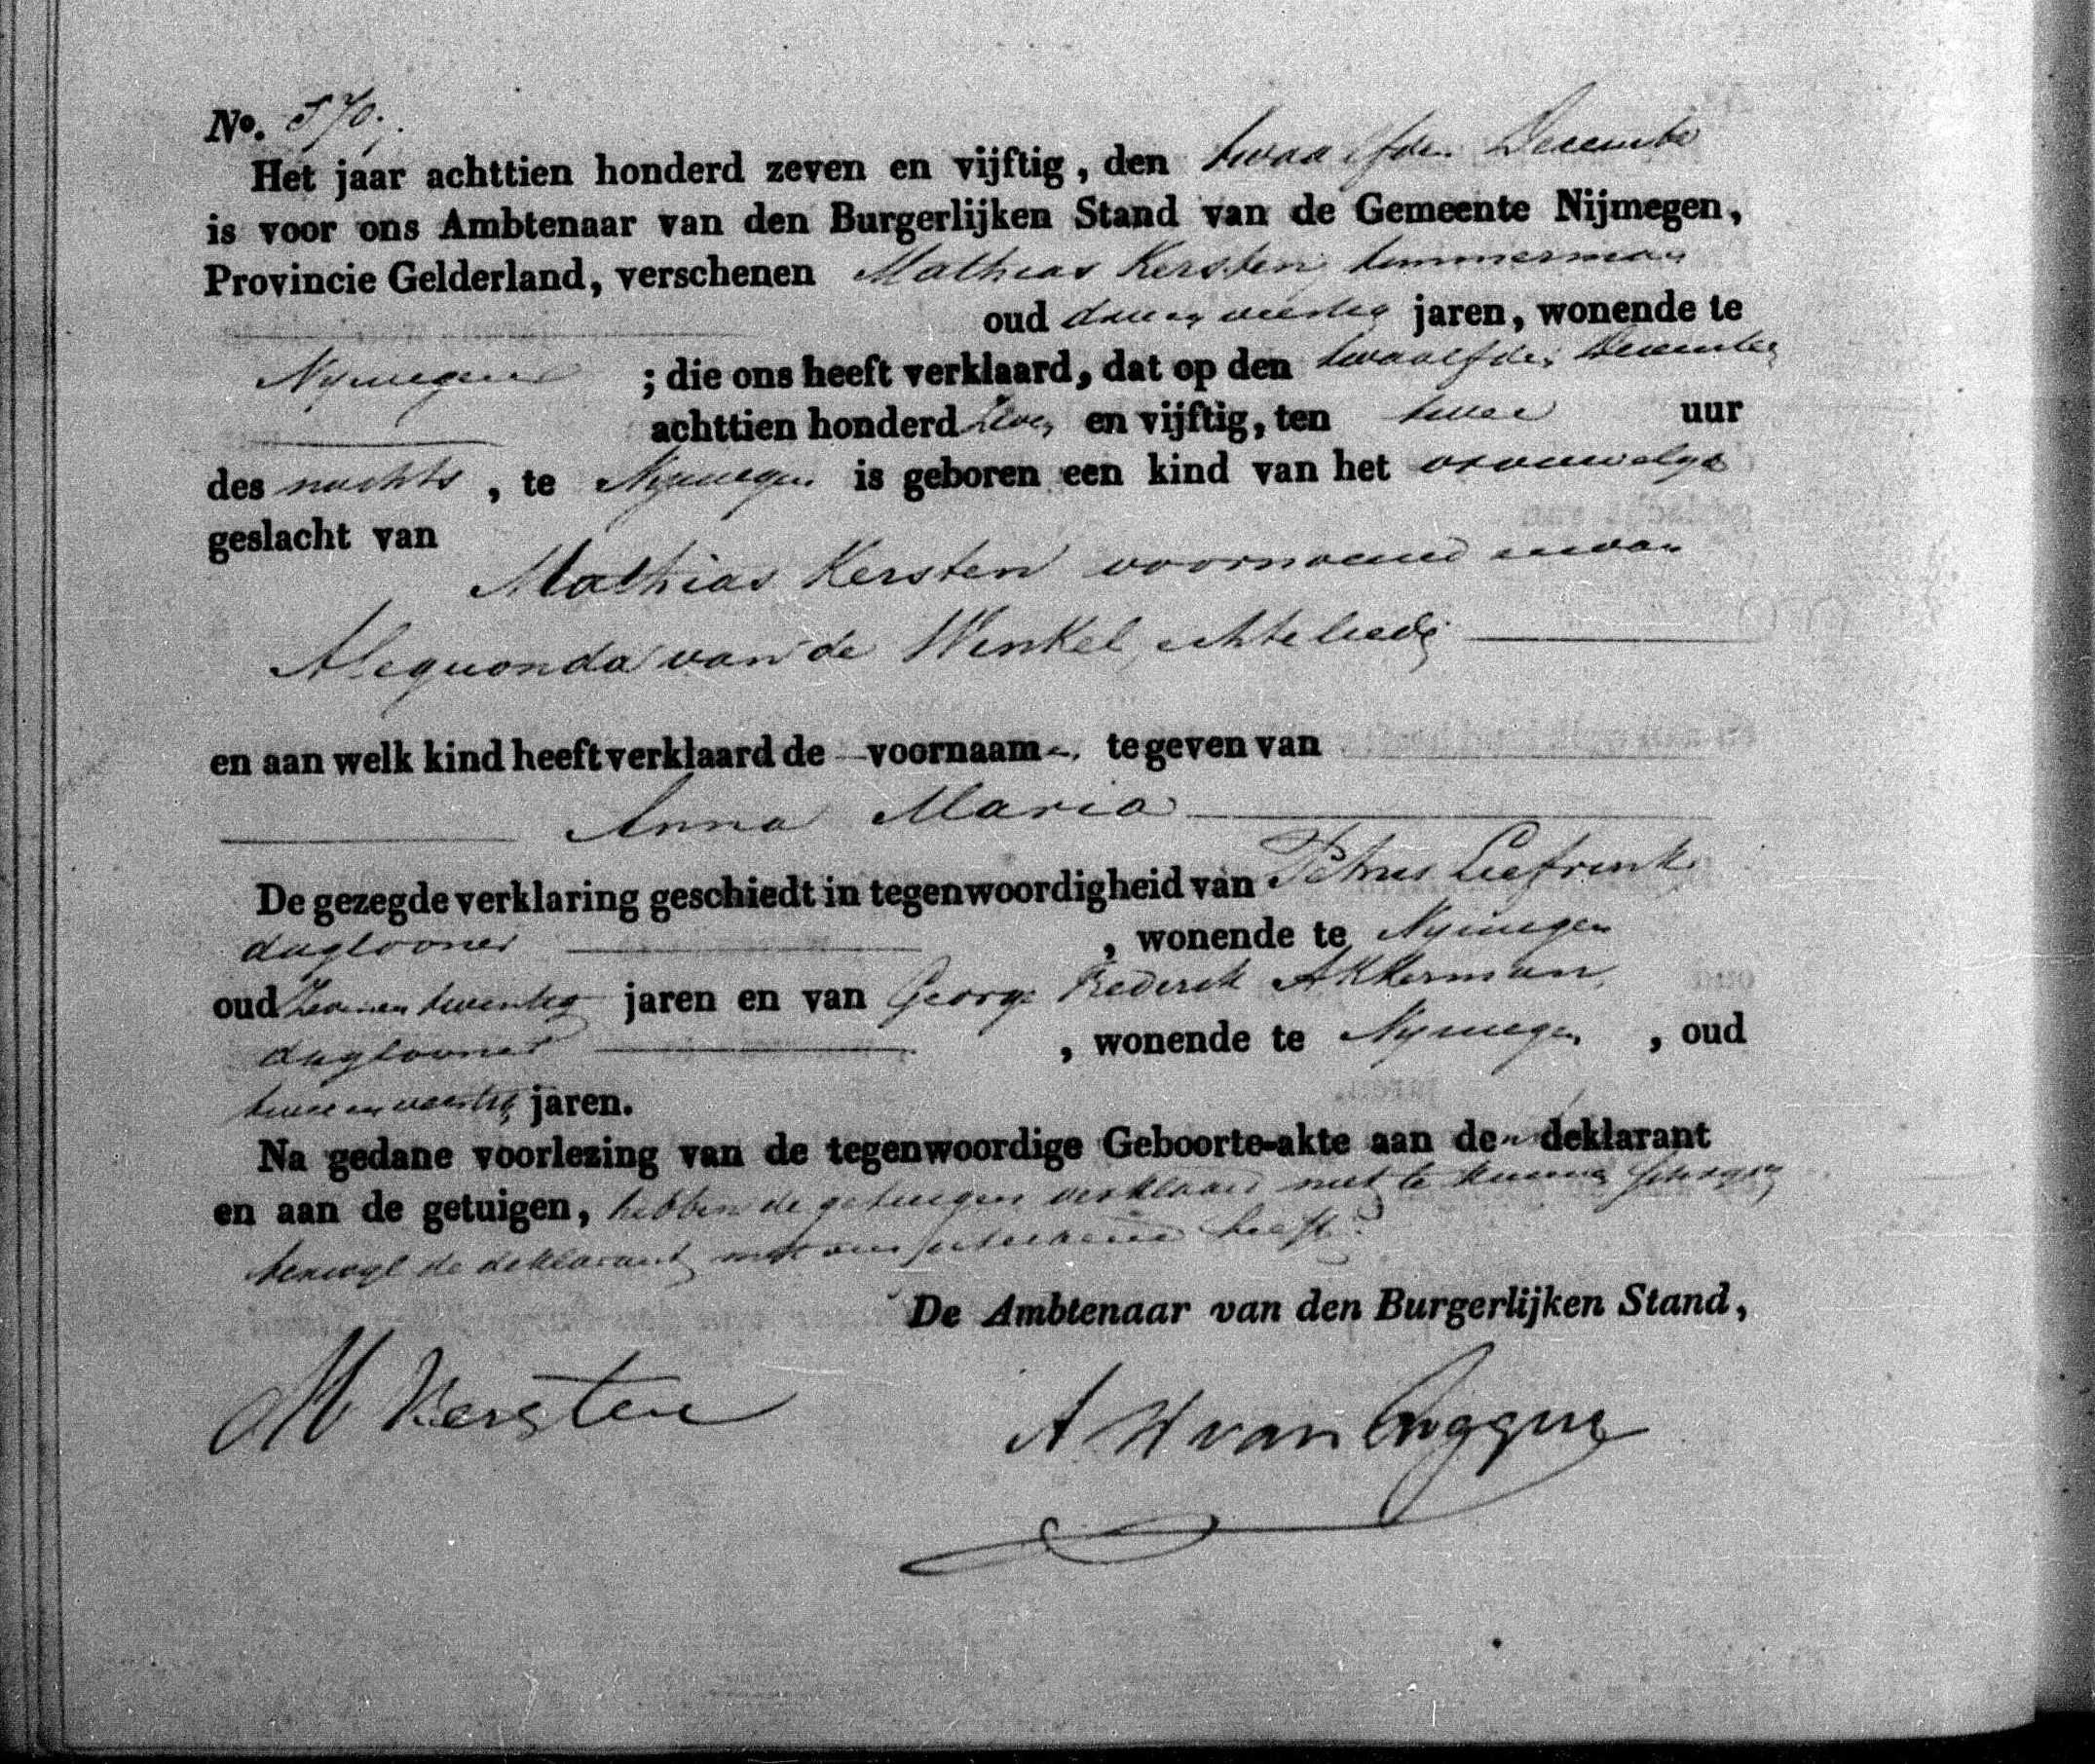 No. 570.
Het jaar achttien honderd zeven en vijftig, den twaalfden December
is voor ons Ambtenaar van den Burgerlijken Stand van de Gemeente Nijmegen,
Provincie Gelderland, verschenen Mathias Kersten, timmerman
oud drie en veertig jaren, wonende te
Nymegen ; die ons heeft verklaard, dat op den twaalfden December
achttien honderd zeven en vijftig, ten twee uur
des nachts, te Nymegen is geboren een kind van het vrouwelyk
geslacht van
Mathias Kersten voornoemd en van
Alequonda van de Winkel, echtelieden
en aan welk kind heeft verklaard de voornaam te geven van
Anna Maria
De gezegde verklaring geschiedt in tegenwoordigheid van Petrus Liefrink
daglooner , wonende te Nymegen
oud zeven en twentig jaren en van George Frederik Akkerman,
daglooner , wonende te Nymegen , oud
twee en veertig jaren.
Na gedane voorlezing van de tegenwoordige Geboorte-akte aan den deklarant
en aan de getuigen, hebben de getuigen verklaard niet te kunnen schryven
terwyl de deklarant met ons geteekend heeft.
De Ambtenaar van den Burgerlijken Stand,
M Kersten A H van